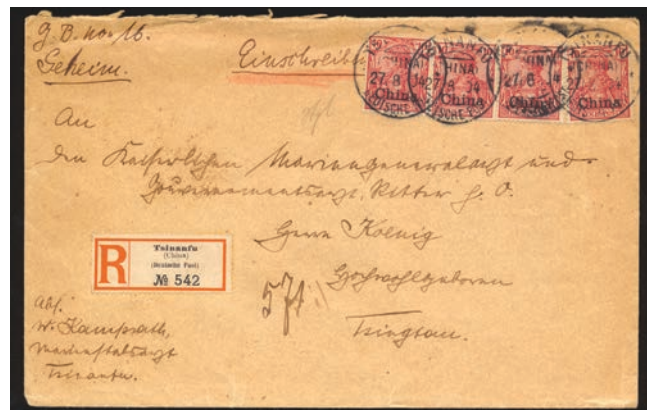 G. B. No. 16.
Geheim.
Einschreiben
TSINANFU
(CHINA)
27 8 14
DEUTSCHE POST
China China China China
An
den Kaiserlichen Marinegeneralarzt und
Gouvernementsarzt, Ritter p. O.
Herrn Koenig
Hochwohlgeboren
Tsingtau.
R
Tsinanfu
(China)
(Deutsche Post)
№ 542
Abs.
W. Kamprath,
Marinestabsarzt
Tsinanfu.